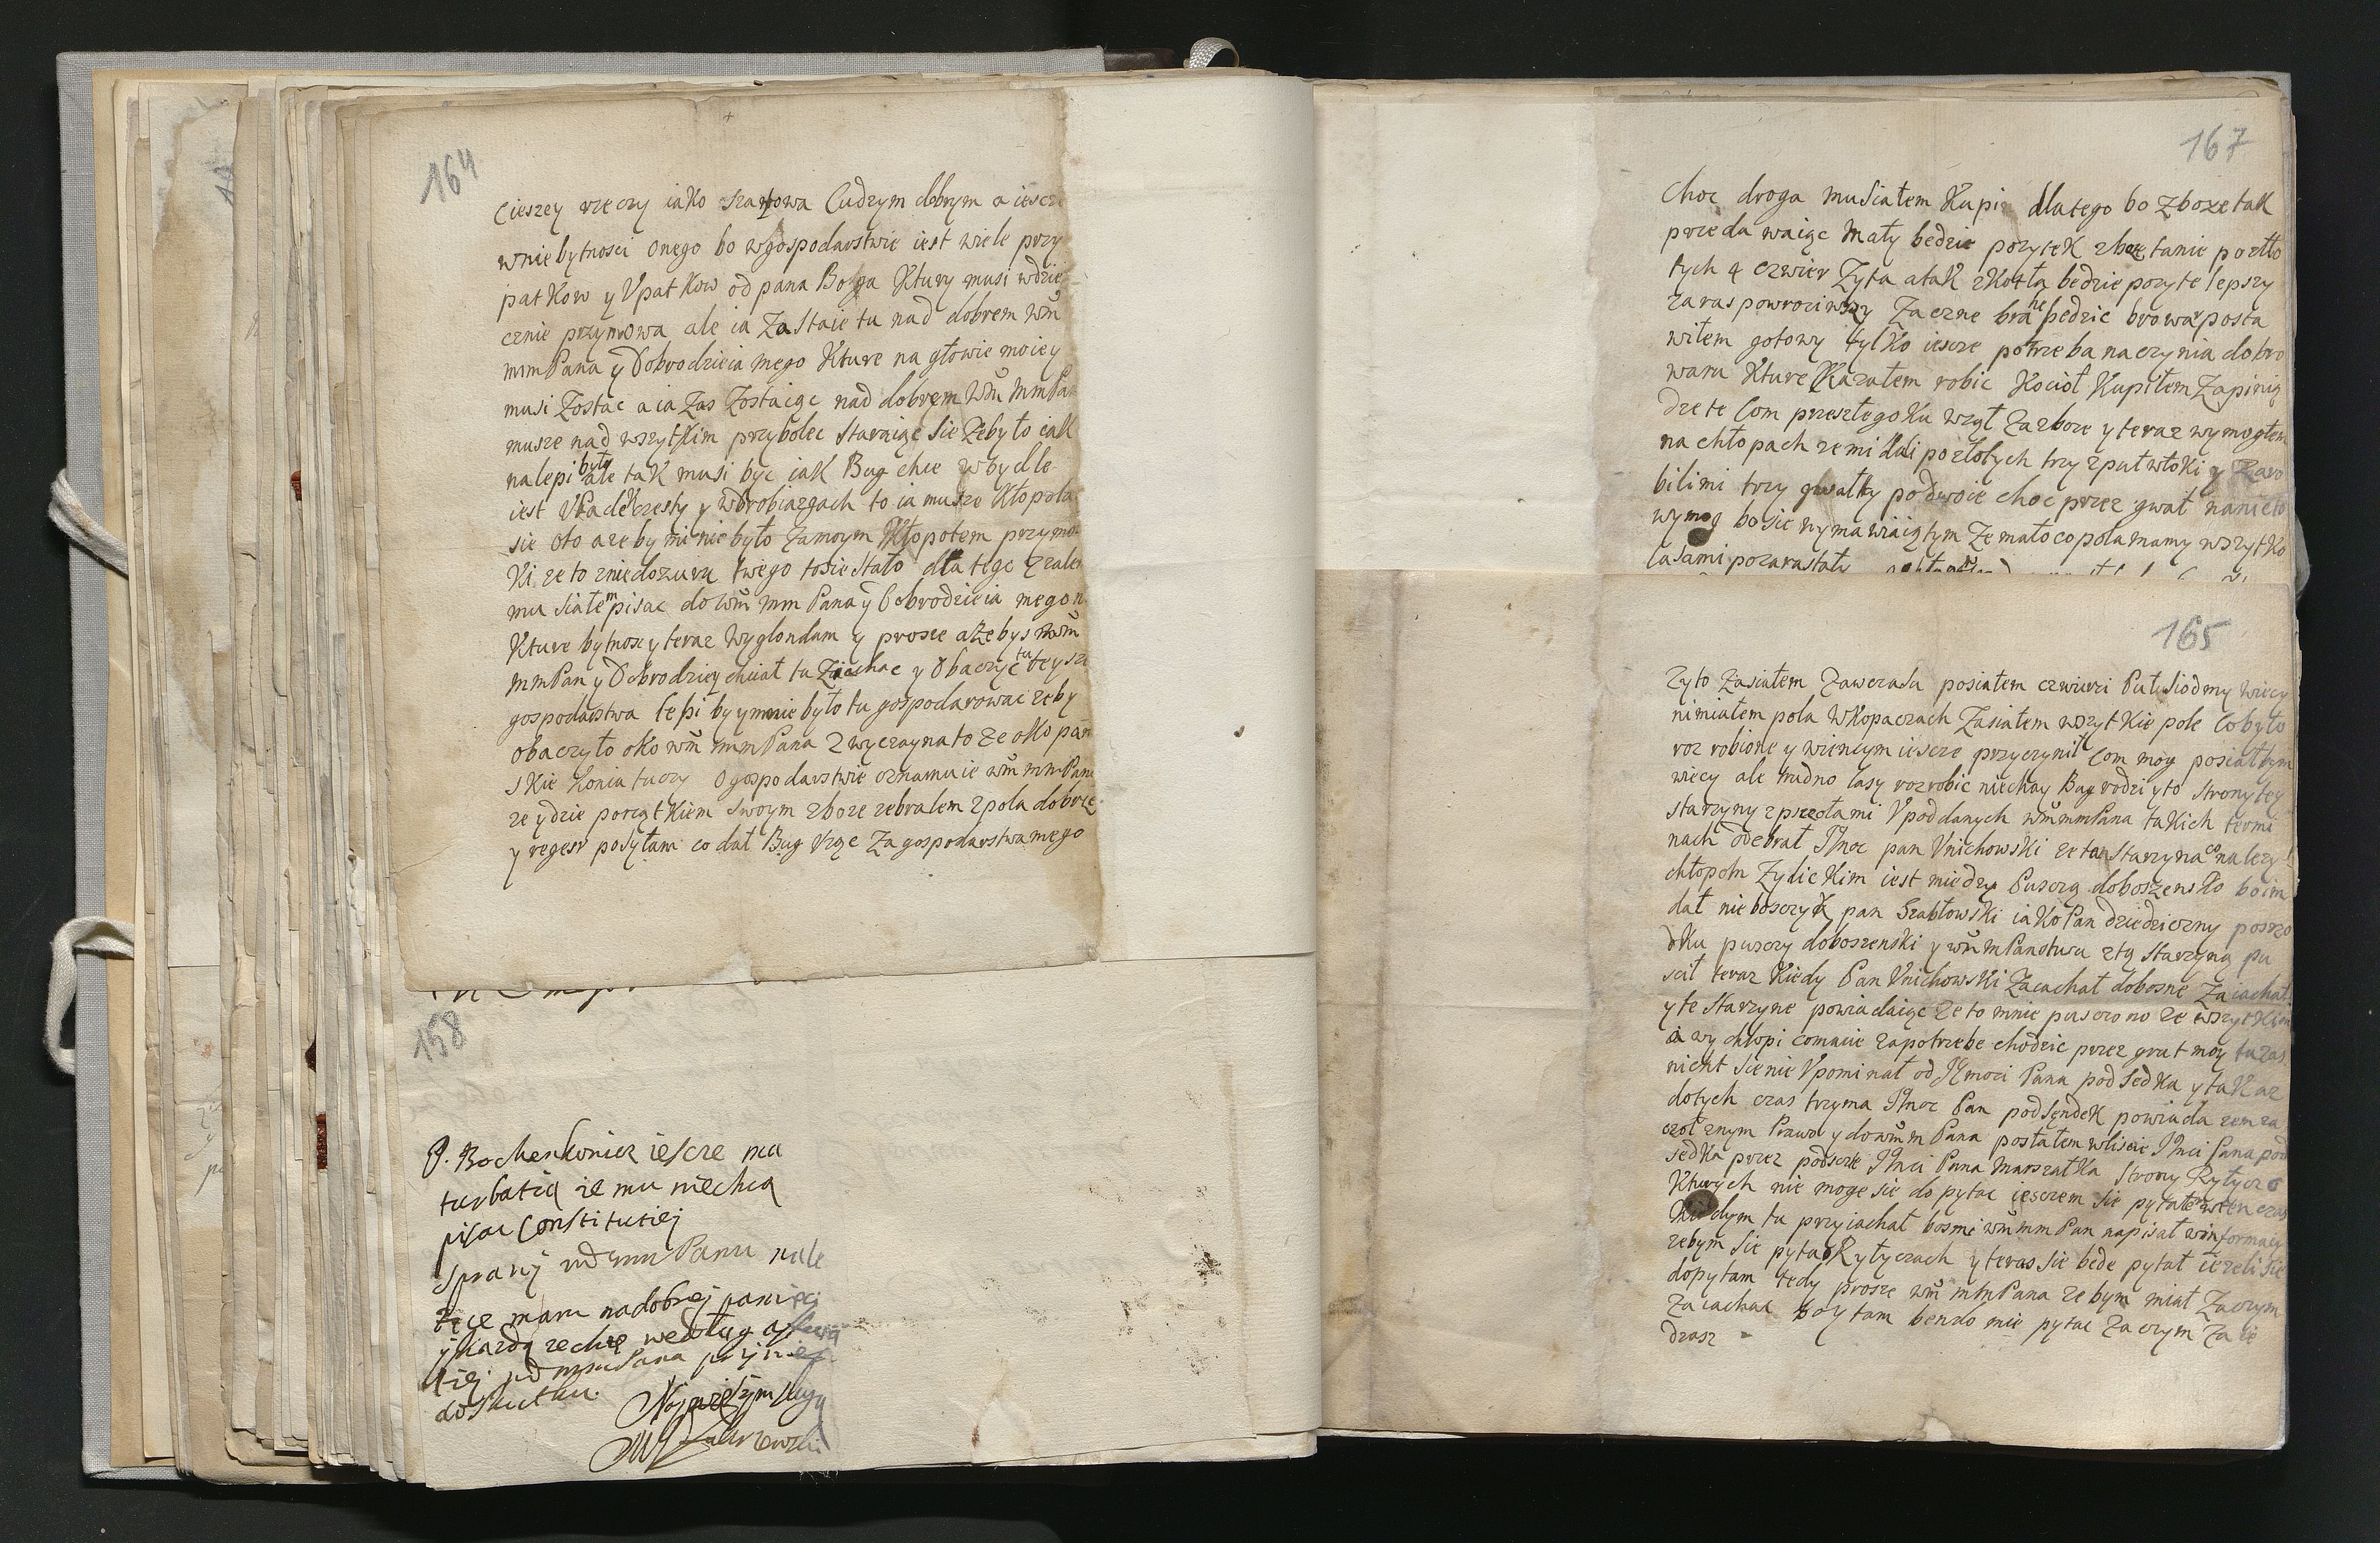 164
Cieszey rzeczy iako szanowa Cudzym dobrym a iescze
wniebytnosci onego bo wgospodarstwie iest wiele przy
patkow y Vpatkow od pana Boga Ktury musi wdzie
cznie przymowa ale ia Zastaie tu nad dobrem wm
mmPana y Dobrodzieia mego Kture na głowie moiey
musi Zostac a ia Zas Zostaiąc nad dobrem Wm MmPan
musze nad wszytkim przybolec staraiąc sie Zeby to iak
nalepi było ale tak musi byc iak Bug chce w bydle
iest Vpadek czesty y wdrobiazgach to ia musze Kłopota
sie oto azeby mi nie było Zamoym Kłopotem przymo
Ki ze to zniedozuru twego tosie stało dla tego
mu siałem pisac do wm mm Pana y Dobrodzieia mego
Kture bytnoscy teraz wyglondam y prosze azebys wm
mmPan y Dobrodziey chciał tu Ziachac y Obaczyc tu tey
gospodarstwa lepi by ymnie było tu gospodarowac zeby
obaczyło oko wm mmPana Zwyczayna to ze oko pan
skie Konia tuczy O gospodarstwie oznamuie wm mmPanu
ze ydzie porządkiem swoym zboze zebrałem zpola dobrze
y regestr posyłam co dał Bug Vrge Za gospodarstwa mego
158
P. Bochenkowicz iescze ma
turbatią ze mu niechcą
pisac Constitutiej
Sprawy wd mm Panu nale
żące mam nadobrej pamięci
y kazdą zechce według
tiej wd mmPana
do skutku.
Nayniższym sługą
Zakrzewski
167
Choc droga musiałem Kupic dlatego bo Zboze tak
przeda waiąc mały bedzie pozytek zboze tanie pozło
tych 4 czwier Zyta atak zKotła bedzie pozyte lepszy
zaras powrociwszy Zaczne brahe pedzic browar posta
wiłem gotowy tylko iescze potrzeba naczynia dobro
waru Kture Kazałem robic Kocioł Kupiłem Zapinią
dze te Com przeszłego Ku wzął Zazboze y teraz wymogłem
na chłopach ze mi dali pozłotych trzy zpułwłoki y Zaro
bili mi trzy gwałty podwoie choc przez gwał nanieto
wymog bo sie wymawiaią tym Ze mało co pola mamy wszytko
lasami pozarastały
165
Zyto Zasiałem Zawczasu posiałem czwierci Pułsiodmy wiecy
nimiałem pola wKopaczach Zasiałem wszytkie pole Co było
roz robione y wiencym iescze przyczynił Com mog posiałbym
wiecy ale trudno lasy rozrobic niechay Bug rodzi yto strony tey
starzyny zpszczołami Vpoddanych wm mmPana takich termi
nach odebrał Jmoc pan Vnichowski ze ta Starzyna co nalezy
chłopom Zydickim iest miedzy Puszczą doboszensko bo im
dał nieboszczyk pan Szabłowski iako Pan dziedziczny poszro
dku puszczy doboszenski y wm mPanstusu ztą starzyną pu
scił teraz Kiedy Pan Vnichowski Zaiachał dobosne Zaiachał
y te starzyne powiadaiąc ze to mnie pusczono ze wszytkim
a wy chłopi comacie zapotrzebe chodzic przez grunt moy tu zas
nicht sie nie Vpominał od JEmoci Pana podsedka y tak az
dotych czas trzyma Jmoc Pan podsendek powiada zemza
czoł znym Prawo y do wm m Pana posłałem wliscie Jmci Pana pod
sedka przez podscie Jmci Pana Marszałka Strony Rytycz
Kturych nie moge sie do pytac iesczem sie pytał wten czas
Kiedym tu przyiachał bo smi wm mm Pan napisał winformacy
zebym sie pytał o Rytyczach y teras sie bede pytał iezeli sie
dopytam tedy prosze wm mmPana zebym miał Zaczym
Zaiachac bo y tam bendo mie pytac Zaczym Zaie
dzasz